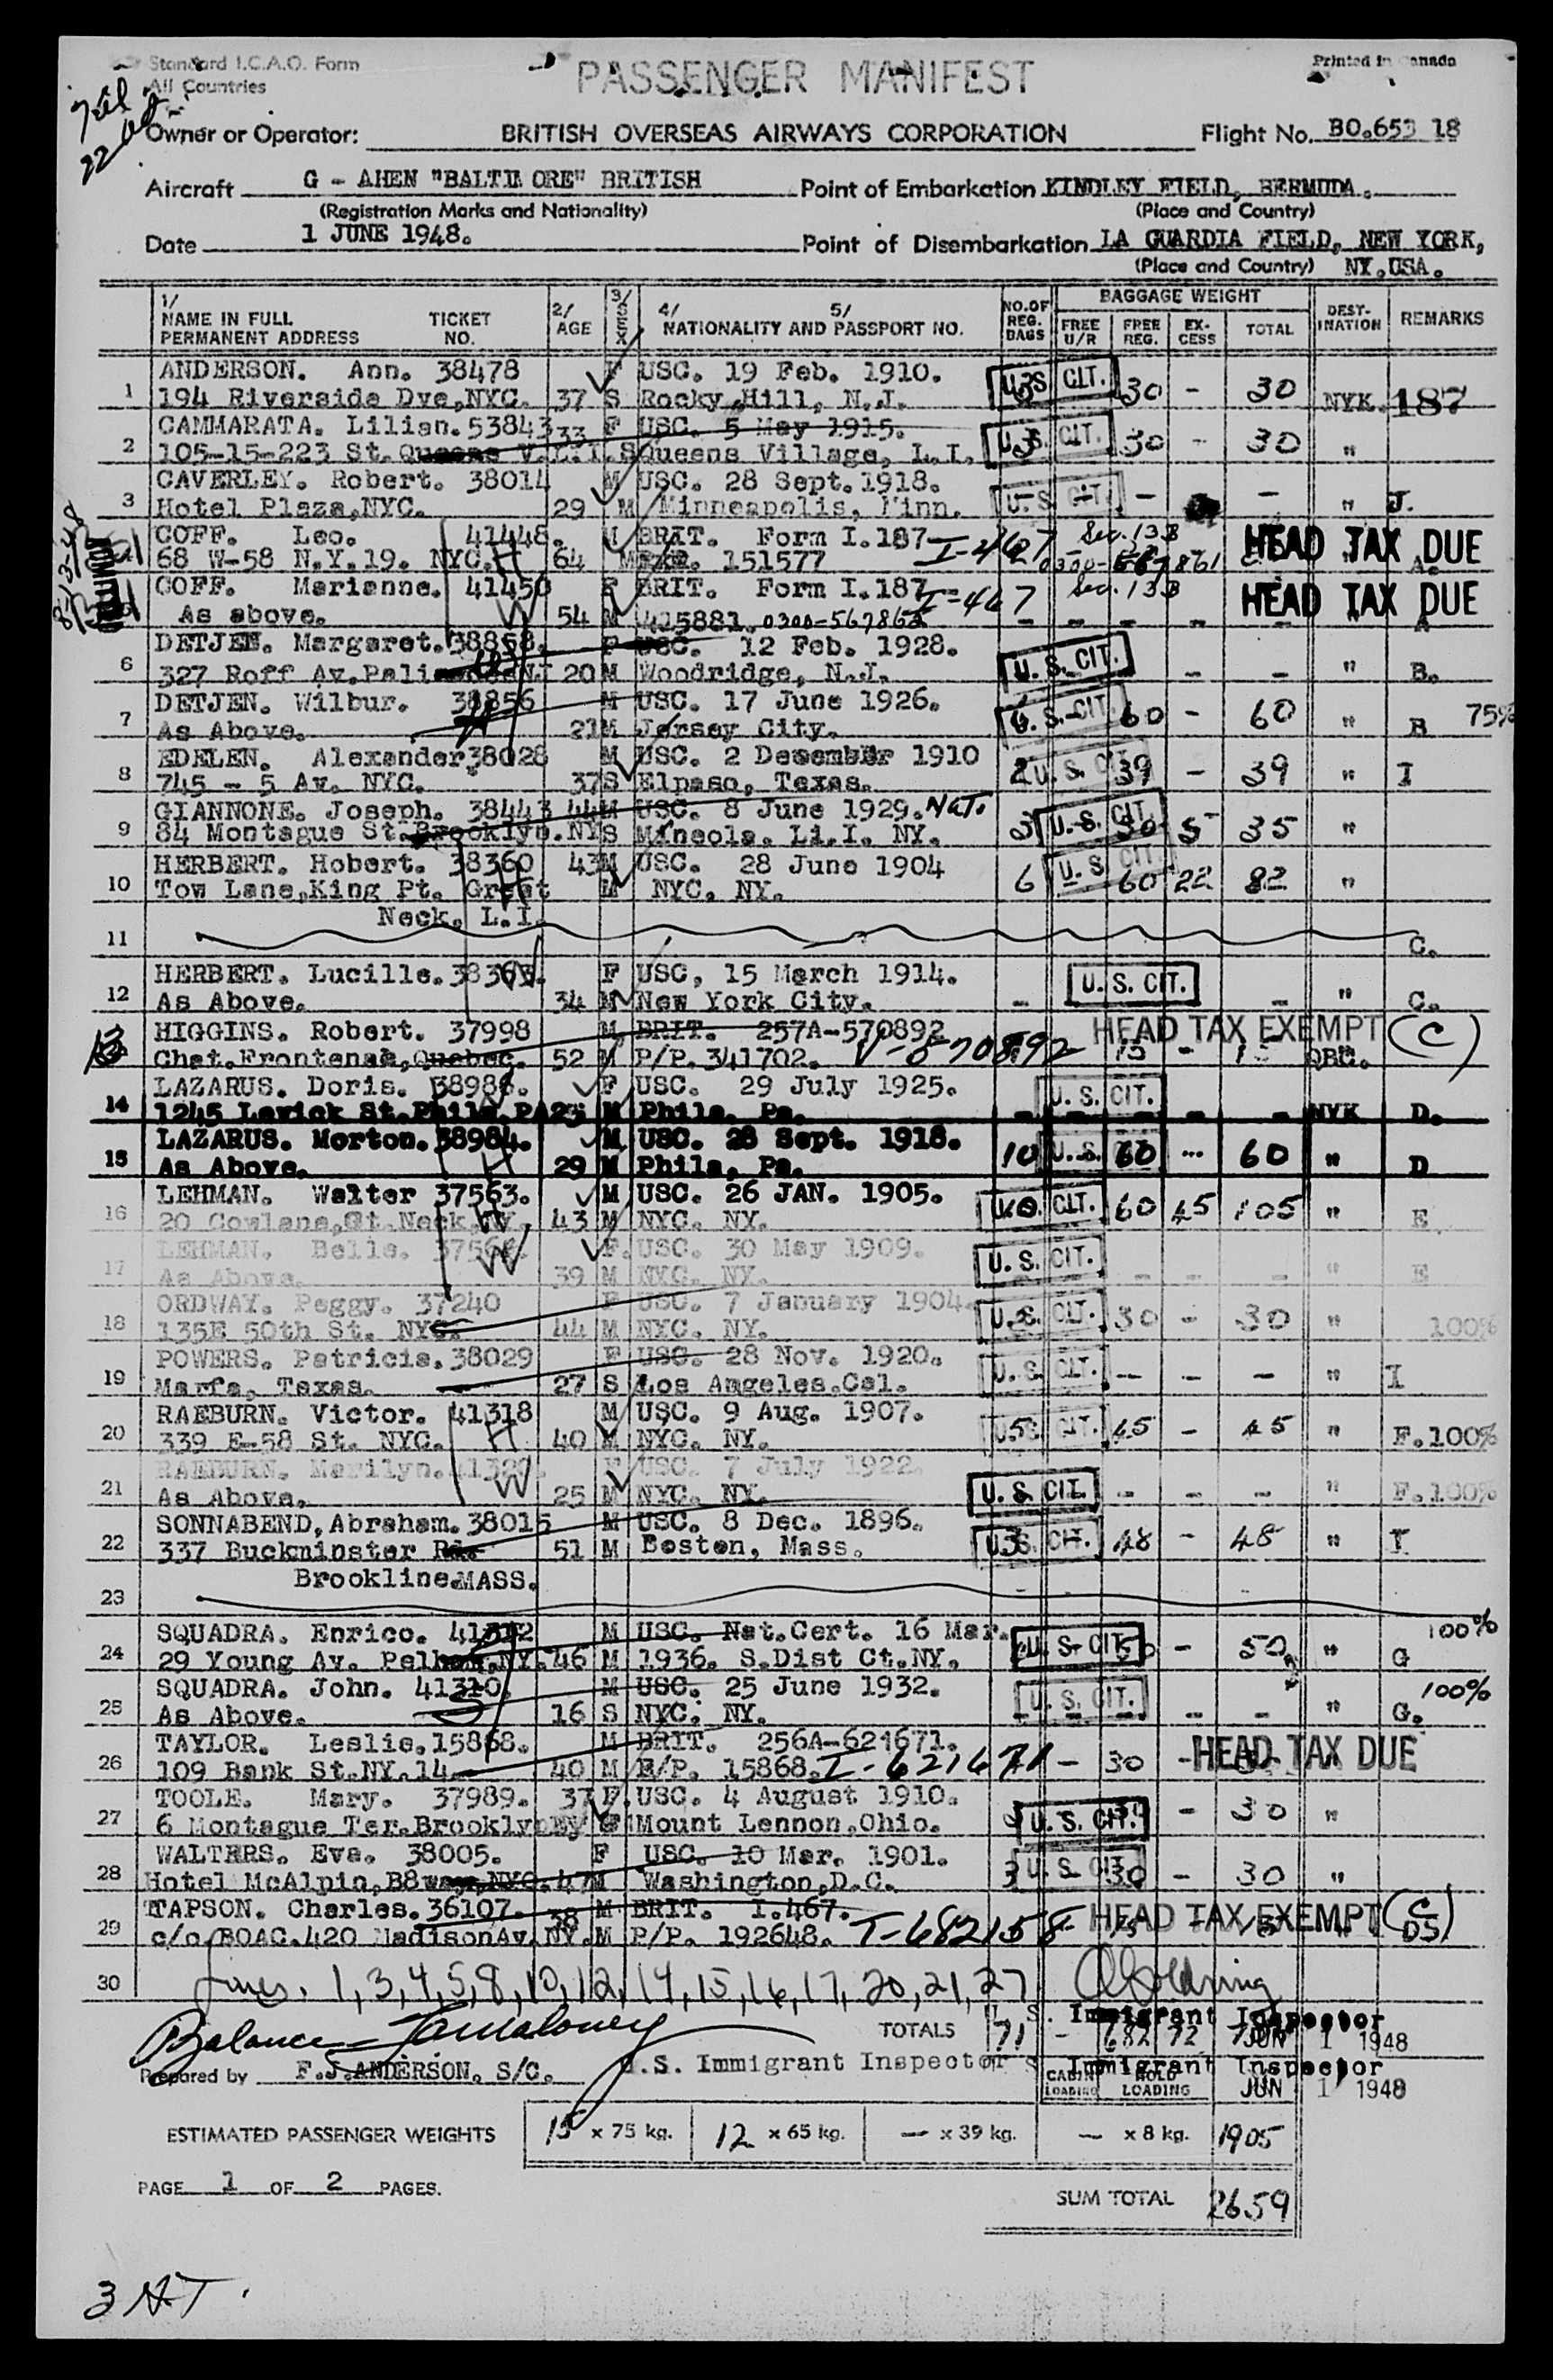 Standard I.C.A.O. Form
All Countries
PASSENGER MANIFEST
Printed in Canada
Owner or Operator: BRITISH OVERSEAS AIRWAYS CORPORATION Flight No. BO.653 18
Aircraft G - AHEN "BALTIMORE" BRITISH Point of Embarkation KINDLEY FIELD, BERMUDA.
(Registration Marks and Nationality) (Place and Country)
Date 1 JUNE 1948. Point of Disembarkation LA GUARDIA FIELD, NEW YORK,
(Place and Country) NY.USA.
1/ NAME IN FULL PERMANENT ADDRESS TICKET NO. 2/ AGE 3/ SEX 4/ 5/ NATIONALITY AND PASSPORT NO. NO.OF REG. BAGS BAGGAGE WEIGHT FREE U/R FREE REG. EX-CESS TOTAL DEST-INATION REMARKS
ANDERSON. Ann. 38478 F USC. 19 Feb. 1910.
1 194 Riverside Dve,NYC. 37 S Rocky Hill, N.J. U.S. CIT. 30 - 30 NYK. 187
CAMMARATA. Lilian. 53843 33 F USC. 5 May 1915.
2 105-15-223 St. Queens V.L.I. S Queens Village, L.I. U.S. CIT. 30 - 30 "
CAVERLEY. Robert. 38014 M USC. 28 Sept.1918.
3 Hotel Plaza,NYC. 29 M Minneapolis, Minn. U.S. CIT. - - " J.
COFF. Leo. 41448. M BRIT. Form I.187 I-467 Sec. 13B HEAD TAX DUE
68 W-58 N.Y.19. NYC. H 64 M 151577 A.
COFF. Marianne. 41450 F BRIT. Form I.187 I-467 Sec. 13B HEAD TAX DUE
As above. W 54 M 415881. - - - - - A
DETJEN. Margaret. 38858. F USC. 12 Feb. 1928.
6 327 Roff Av.Palisades NJ 20 M Woodridge, N.J. U.S. CIT. - - " B.
DETJEN. Wilbur. 38856 M USC. 17 June 1926.
7 As Above. H 21 M Jersey City. U.S. CIT. 60 - 60 " B 75%
EDELEN. Alexander 38028 M USC. 2 December 1910
8 745 - 5 Av. NYC. 37 S Elpaso, Texas. 2 U.S. CIT. 39 - 39 " I
GIANNONE. Joseph. 38443 44 M USC. 8 June 1929. Nat.
9 84 Montague St.Brooklyn.NY S Mineola. Li.I. NY. 3 U.S. CIT. 30 5 35 "
HERBERT. Hobert. 38360 43 M USC. 28 June 1904
10 Tow Lane,King Pt. Great M NYC. NY. 6 U.S. CIT. 60 22 82 "
Neck. L.I.
11 C.
HERBERT. Lucille. 38363. F USC, 15 March 1914.
12 As Above. 34 M New York City. - U.S. CIT. - " C.
HIGGINS. Robert. 37998 M BRIT. 257A-570892 HEAD TAX EXEMPT (C)
13 Chat.Frontenac,Quebec. 52 M P/P. 341702. V-570892 15 - 15 QBC.
LAZARUS. Doris. 38986. F USC. 29 July 1925. U.S. CIT.
14 1245 Levick St.Phila.PA 23 M Phila. Pa. - - - - NYK D.
LAZARUS. Morton. 38984. M USC. 28 Sept. 1918.
15 As Above. H 29 M Phila. Pa. 10 U.S. 60 - 60 " D
LEHMAN. Walter 37563. M USC. 26 JAN. 1905.
16 20 Cowlane,Gt.Neck,NY. H 43 M NYC. NY. U.S. CIT. 60 45 105 " E
LEHMAN. Belle. F. USC. 30 May 1909.
17 As Above. W 39 M NYC. NY. U.S. CIT. - - - " E
ORDWAY. Peggy. 37240 F USC. 7 January 1904.
18 135E 50th St. NYC. 44 M NYC. NY. U.S. CIT. 30 - 30 " 100%
POWERS. Patricia. 38029 F USC. 28 Nov. 1920.
19 Marfa, Texas. 27 S Los Angeles.Cal. U.S. CIT. - - - " I
RAEBURN. Victor. 41318 M USC. 9 Aug. 1907.
20 339 E-58 St. NYC. H 40 M NYC. NY. U.S. CIT. 45 - 45 " F.100%
RAEBURN. Marilyn. F USC. 7 July 1922
21 As Above. W 25 M NYC. NY. U.S. CIT. - - - " F.100%
SONNABEND,Abraham. 38015 M USC. 8 Dec. 1896.
22 337 Buckminster Rd. 51 M Boston, Mass. U.S. CIT. 48 - 48 " I
Brookline.MASS.
23
SQUADRA. Enrico. 41312 M USC. Nat.Cert. 16 Mar. 100%
24 29 Young Av. Pelham,NY. 46 M 1936. S.Dist Ct.NY. U.S. CIT. 50 - 50 " G
SQUADRA. John. 41310. M USC. 25 June 1932. 100%
25 As Above. 16 S NYC. NY. U.S. CIT. - - " G.
TAYLOR. Leslie. 15868. M BRIT. 256A-621671. HEAD TAX DUE
26 109 Bank St.NY.14 40 M E/P. 15868. I-621671 - 30 -
TOOLE. Mary. 37989. 37 F. USC. 4 August 1910.
27 6 Montague Ter.Brooklyn NY S Mount Lennon,Ohio. U.S. CIT. - 30 "
WALTERS. Eva. 38005. F USC. 10 Mar. 1901.
28 Hotel McAlpin,B8way,NYC. 47 M Washington,D.C. 3 U.S. CIT. 30 - 30 "
TAPSON. Charles. 36107. 38 M BRIT. I.467. HEAD TAX EXEMPT (C)
29 c/o BOAC.420 MadisonAv.NY. M P/P. 192648. I-682158 DS
30 Lines. 1,3,4,5,8,10,12,14,15,16,17,20,21,27
TOTALS 71 - 682 72 U.S. Immigrant Inspector JUN 1 1948
Balance
Prepared by F.J.ANDERSON. S/C. U.S. Immigrant Inspector Immigrant Inspector
CABIN LOADING HOLD LOADING JUN 1 1948
ESTIMATED PASSENGER WEIGHTS 15 x 75 kg. 12 x 65 kg. — x 39 kg. — x 8 kg. 1905
PAGE 1 OF 2 PAGES. SUM TOTAL 2659
3 HT.